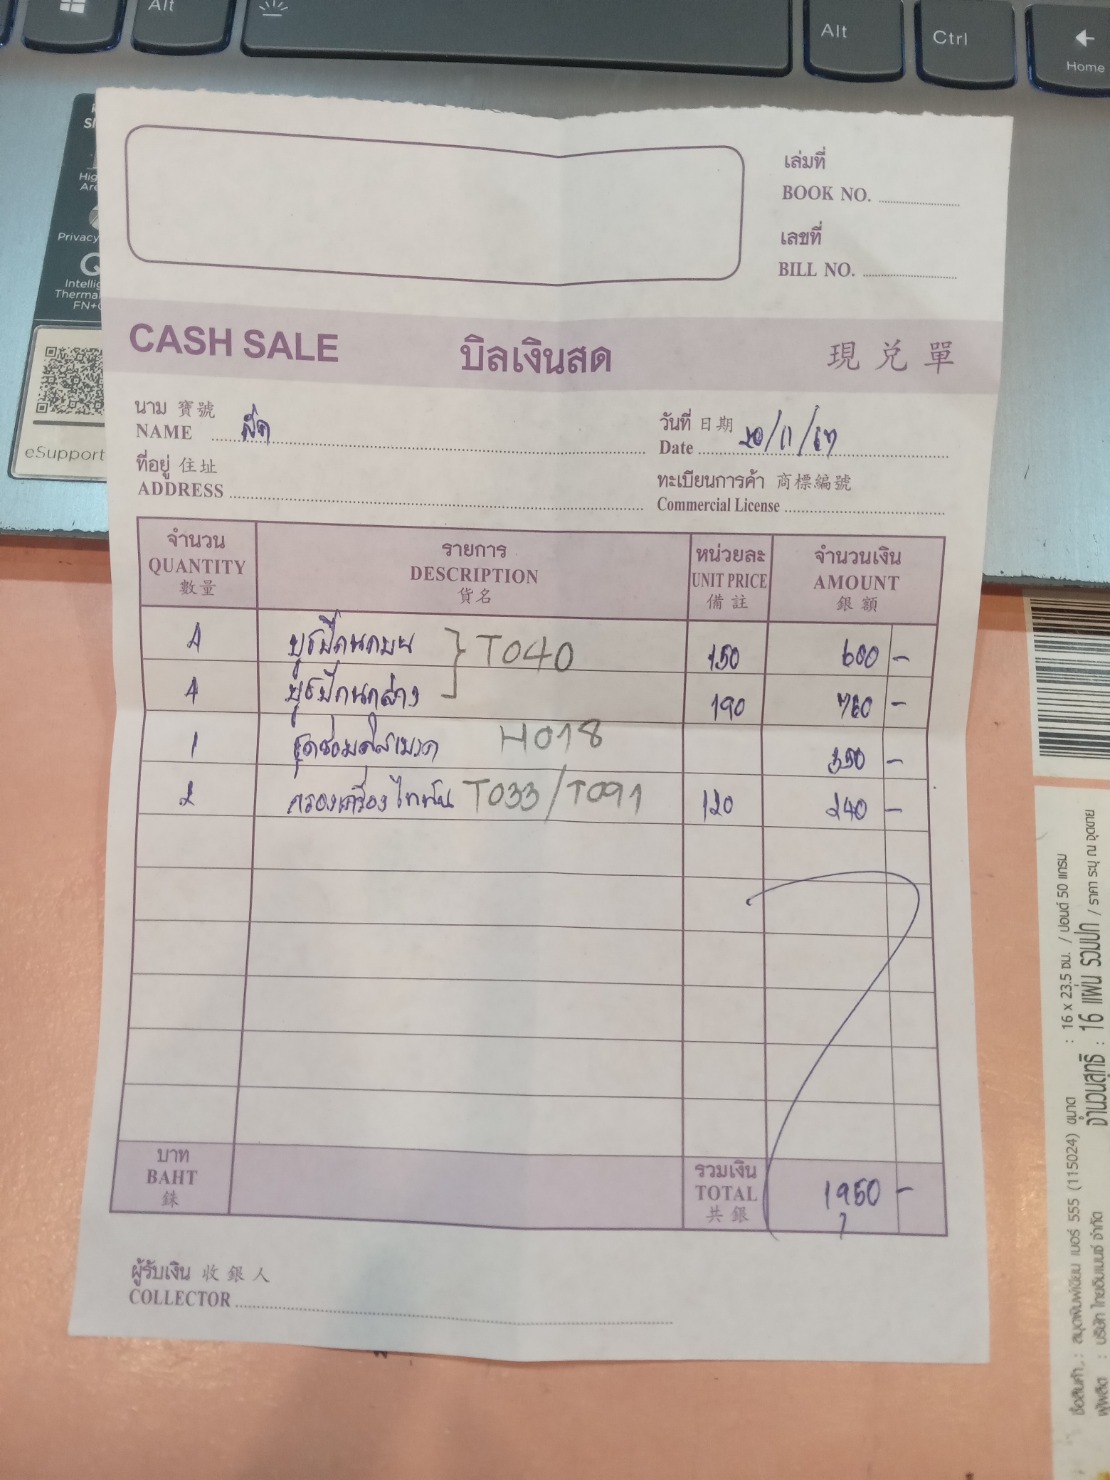 Alt
Alt
Ctrl
Home
Privacy
Thermal
FN+
eSupport
เล่มที่
BOOK NO.
เลขที่
BILL NO.
CASH SALE บิลเงินสด 現兑單
นาม 寶號
NAME
วันที่ 日期
Date 20/11/67
ที่อยู่ 住址
ADDRESS
ทะเบียนการค้า 商標編號
Commercial License
จำนวน รายการ หน่วยละ จำนวนเงิน
QUANTITY DESCRIPTION UNIT PRICE AMOUNT
數量 貨名 備註 銀額
4 บูชปีกนกบน T040 150 600 -
4 บูชปีกนกล่าง 190 760 -
1 ชุดซ่อมดิสเบรค H018 350 -
2 กรองเครื่อง ไททัน T033/T091 120 240 -
บาท รวมเงิน
BAHT TOTAL 1950 -
銖 共銀
ผู้รับเงิน 收銀人
COLLECTOR
ชื่อสินค้า : สมุดพิมพ์เขียน เบอร์ 555 (115024) ขนาด : 16 x 23.5 ซม. / ปอนด์ 50 แกรม
ผู้ผลิต : บริษัท ไทยอิมเมนซ์ จำกัด จำนวนสุทธิ : 16 แผ่น รวมปก / ราคา ระบุ ณ จุดขาย